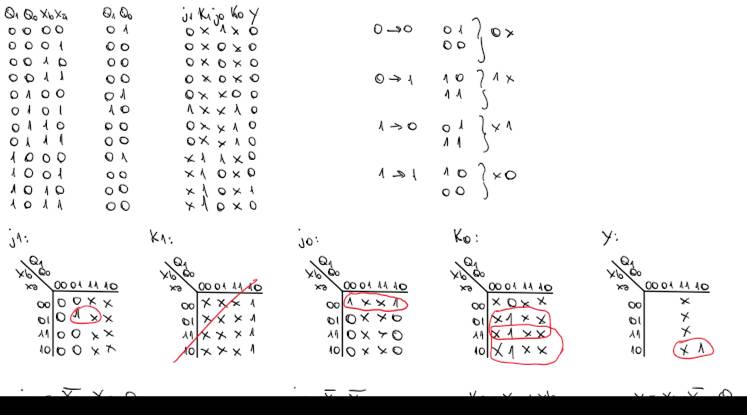 Q1 Q0 xb xa   Q1 Q0   j1 K1 j0 K0 y
0 0 0 0   0 1   0 x 1 x 0
0 0 0 1   0 0   0 x 0 x 0
0 0 1 0   0 0   0 x 0 x 0
0 0 1 1   0 0   0 x 0 x 0
0 1 0 0   0 1   0 x x 0 0
0 1 0 1   1 0   1 x x 1 0
0 1 1 0   0 0   0 x x 1 0
0 1 1 1   0 0   0 x x 1 0
1 0 0 0   0 1   x 1 1 x 0
1 0 0 1   0 0   x 1 0 x 0
1 0 1 0   0 0   x 1 0 x 1
1 0 1 1   0 0   x 1 0 x 0
0 → 0   0 1 } 0 x
0 0
0 → 1   1 0 } 1 x
1 1
1 → 0   0 1 } x 1
1 1
1 → 1   1 0 } x 0
0 0
j1:
Q1
Q0
xb
xa
00 01 11 10
00 0 0 x x
01 0 1 x x
11 0 0 x x
10 0 0 x x
K1:
Q1
Q0
xb
xa
00 01 11 10
00 x x x 1
01 x x x 1
11 x x x 1
10 x x x 1
j0:
Q1
Q0
xb
xa
00 01 11 10
00 1 x x 1
01 0 x x 0
11 0 x x 0
10 0 x x 0
K0:
Q1
Q0
xb
xa
00 01 11 10
00 x 0 x x
01 x 1 x x
11 x 1 x x
10 x 1 x x
y:
Q1
Q0
xb
xa
00 01 11 10
00 x
01 x
11 x
10 x 1